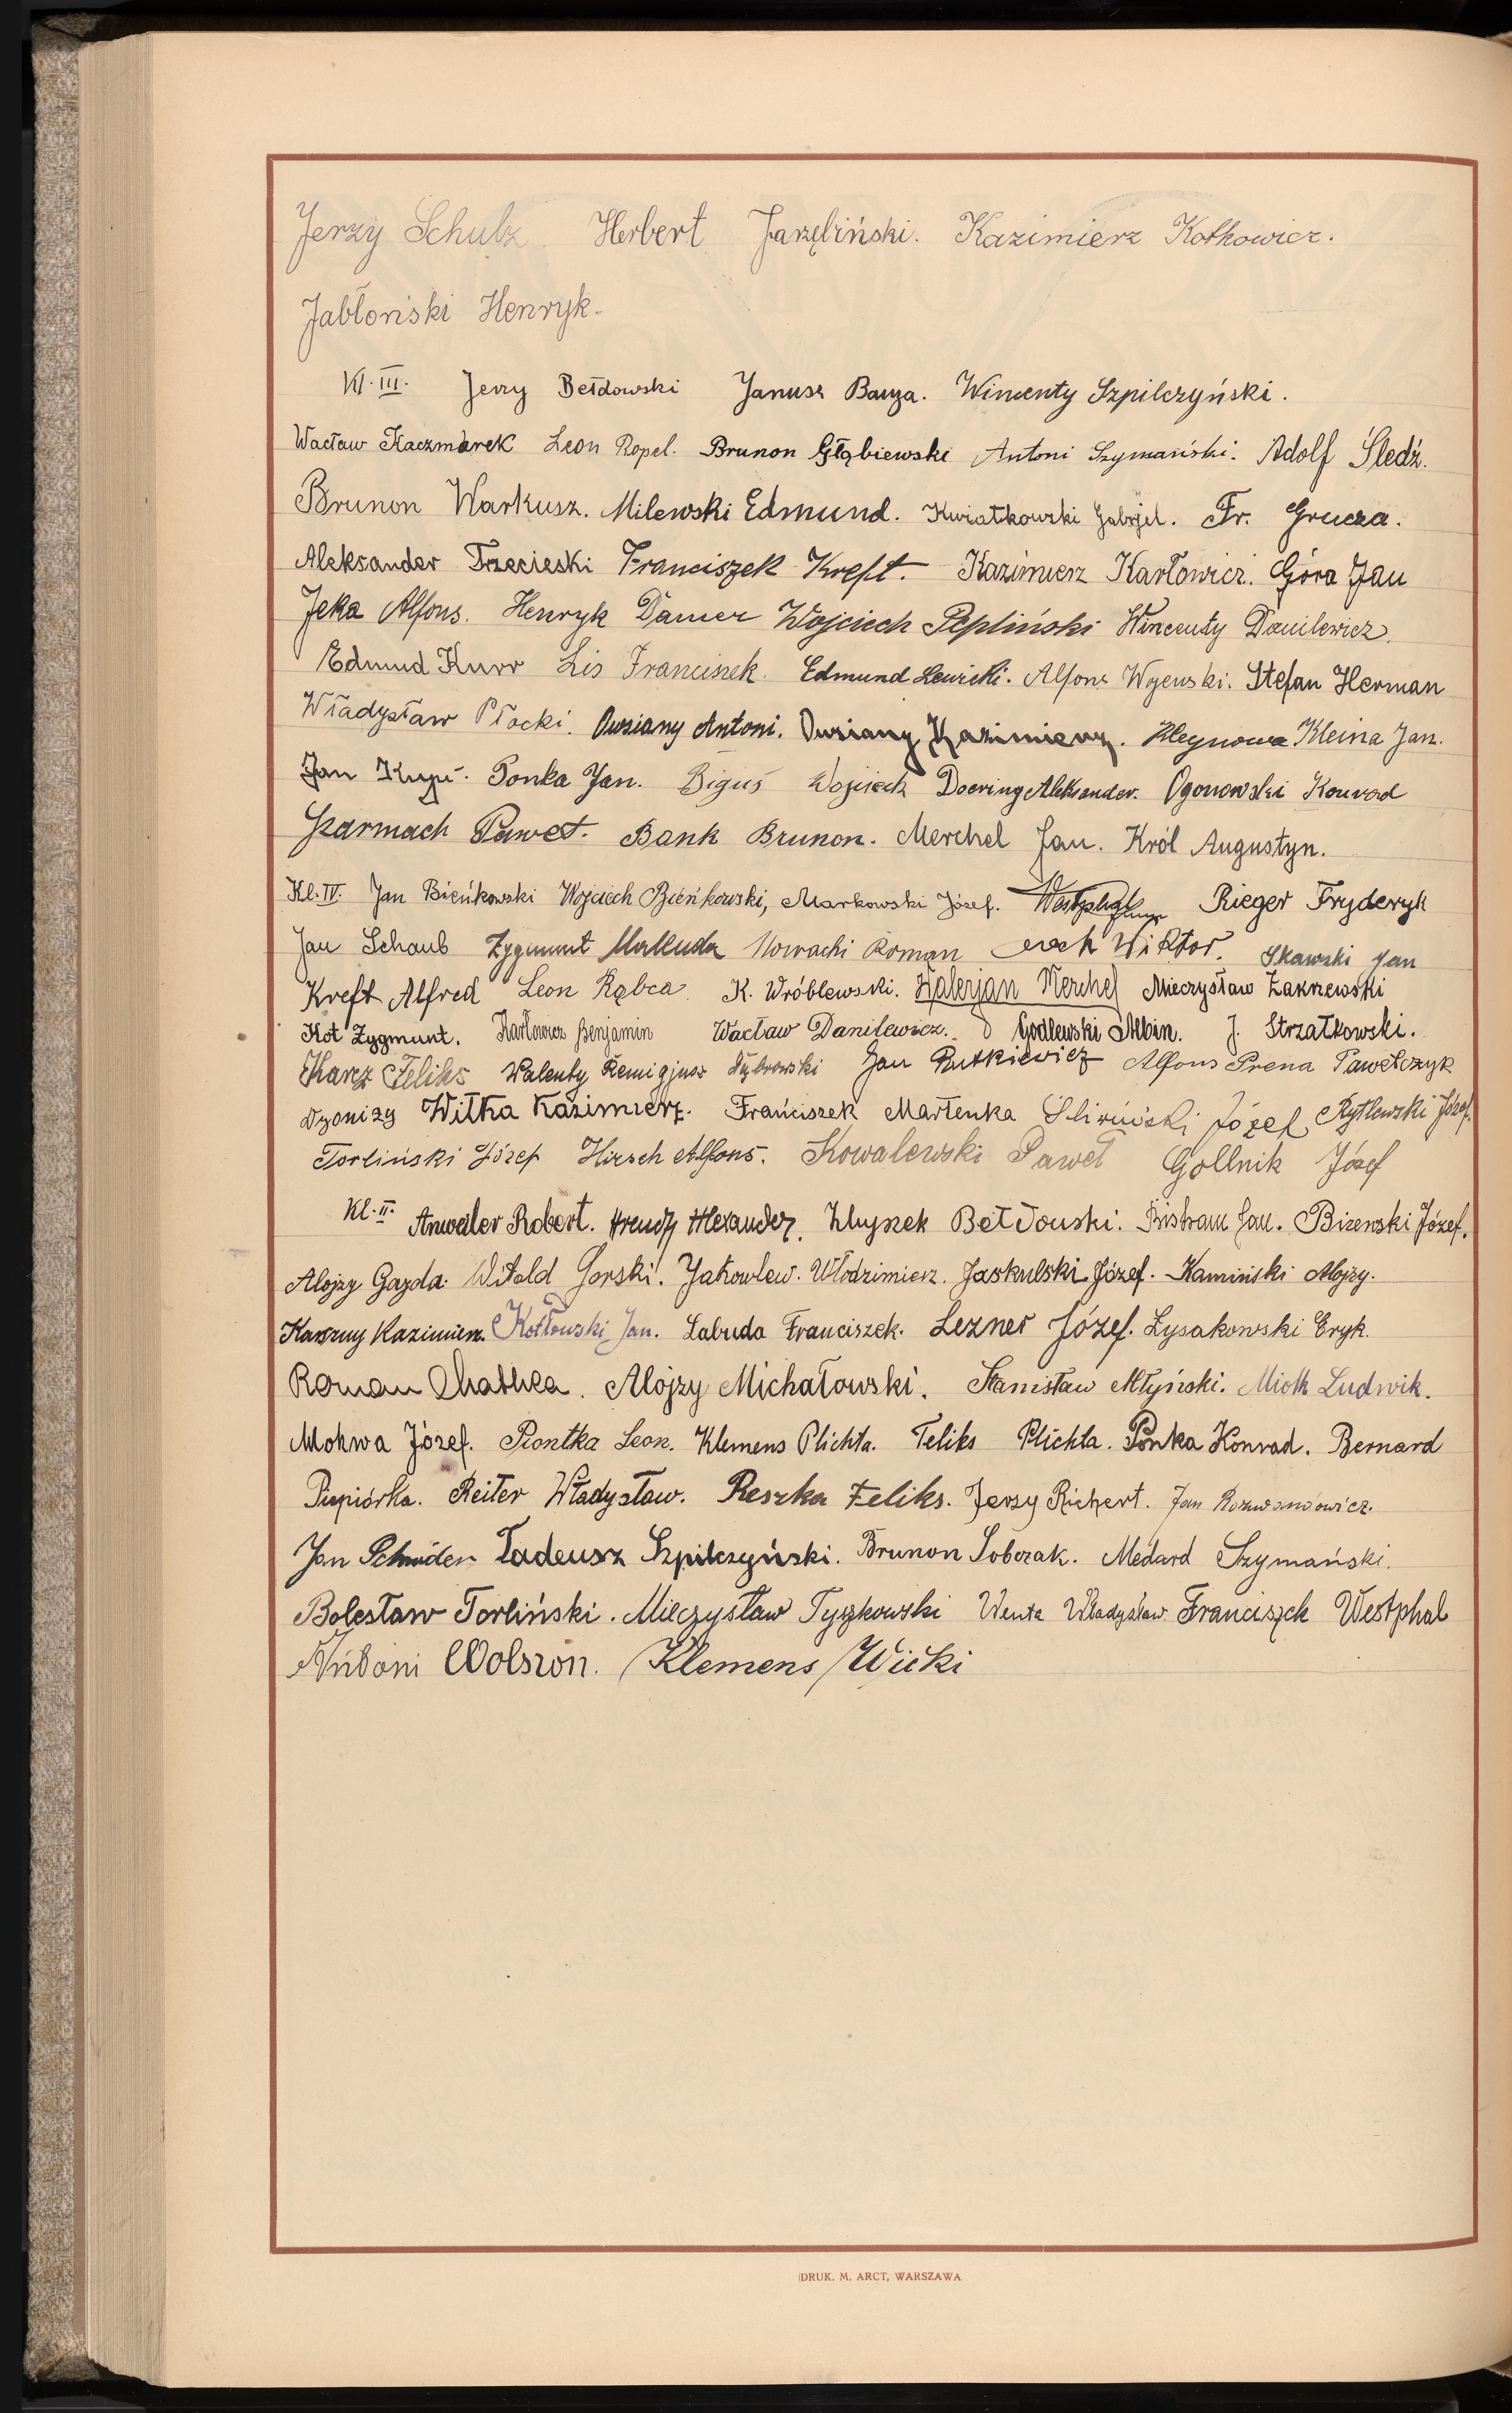 Jerzy Schulz Herbert Jarzębiński. Kazimierz Kotkowicz.
Jabłoński Henryk.
Kl. III. Jerzy Bełdowski Janusz Barza. Wincenty Szpilczyński.
Wacław Kaczmarek Leon Ropel. Brunon Głąbiewski Antoni Szymański. Adolf Śledź.
Brunon Warkusz. Milewski Edmund. Kwiatkowski Gabrjel. Fr. Grucza.
Aleksander Trzecieski Franciszek Kreft. Kazimierz Karłowicz. Góra Jan
Jeka Alfons. Henryk Damer Wojciech Pepliński Wincenty Danilewicz.
Edmud Kurr Lis Franciszek. Edmund Lewicki. Alfons Wojewski. Stefan Herman
Władysław Płocki. Owsiany Antoni. Owsiany Kazimierz. Kleina Jan.
Jan Ponka Jan. Biguś Wojciech Doering Aleksander. Ogonowski Konrad
Szarmach Paweł. Bank Brunon. Merchel Jan. Król Augustyn.
Kl. IV. Jan Bieńkowski Wojciech Bieńkowski, Markowski Józef. Westphal Rieger Fryderyk
Jan Schaub Zygmunt Makuda Nowacki Roman Wiktor. Skawski Jan
Kreft Alfred Leon Rąbca K. Wróblewski. Walerjan Merchel Mieczysław Zakrzewski
Kot Zygmunt. Karłowicz Benjamin Wacław Danilewicz. Godlewski Albin. J. Strzałkowski.
Karcz Feliks Walenty Remigjusz Dybrowski Jan Rutkiewicz Alfons Prena Pawełczyk
Dyonizy Witka Kazimierz. Franciszek Martenka Śliwiński Józef Rytlewski Józef.
Torliński Józef Hirsch Alfons. Kowalewski Paweł Gollnik Józef
Kl. II. Anweiler Robert. Arendt Alexander. Zbyszek Bełdowski. Bistram Jan. Bizewski Józef.
Alojzy Gazda. Witold Gorski. Jakowlew. Włodzimierz. Jaskulski Józef. Kamiński Alojzy.
Karszny Kazimierz. Kotłowski Jan. Labuda Franciszek. Lezner Józef. Łysakowski Eryk.
Roman Mathea. Alojzy Michałowski. Stanisław Młyński. Miotk Ludwik.
Mokwa Józef. Piontka Leon. Klemens Plichta. Feliks Plichta. Ponka Konrad. Bernard
Piepiórka. Reiter Władysław. Reszka Feliks. Jerzy Richert. Jan Rozwadowicz.
Jan Schnider Tadeusz Szpilczyński. Brunon Sobczak. Medard Szymański.
Bolesław Torliński. Mieczysław Tyszkowski Wenta Władysław. Franciszek Westphal
Antoni Wolszon. Klemens Wicki
DRUK. M. ARCT, WARSZAWA